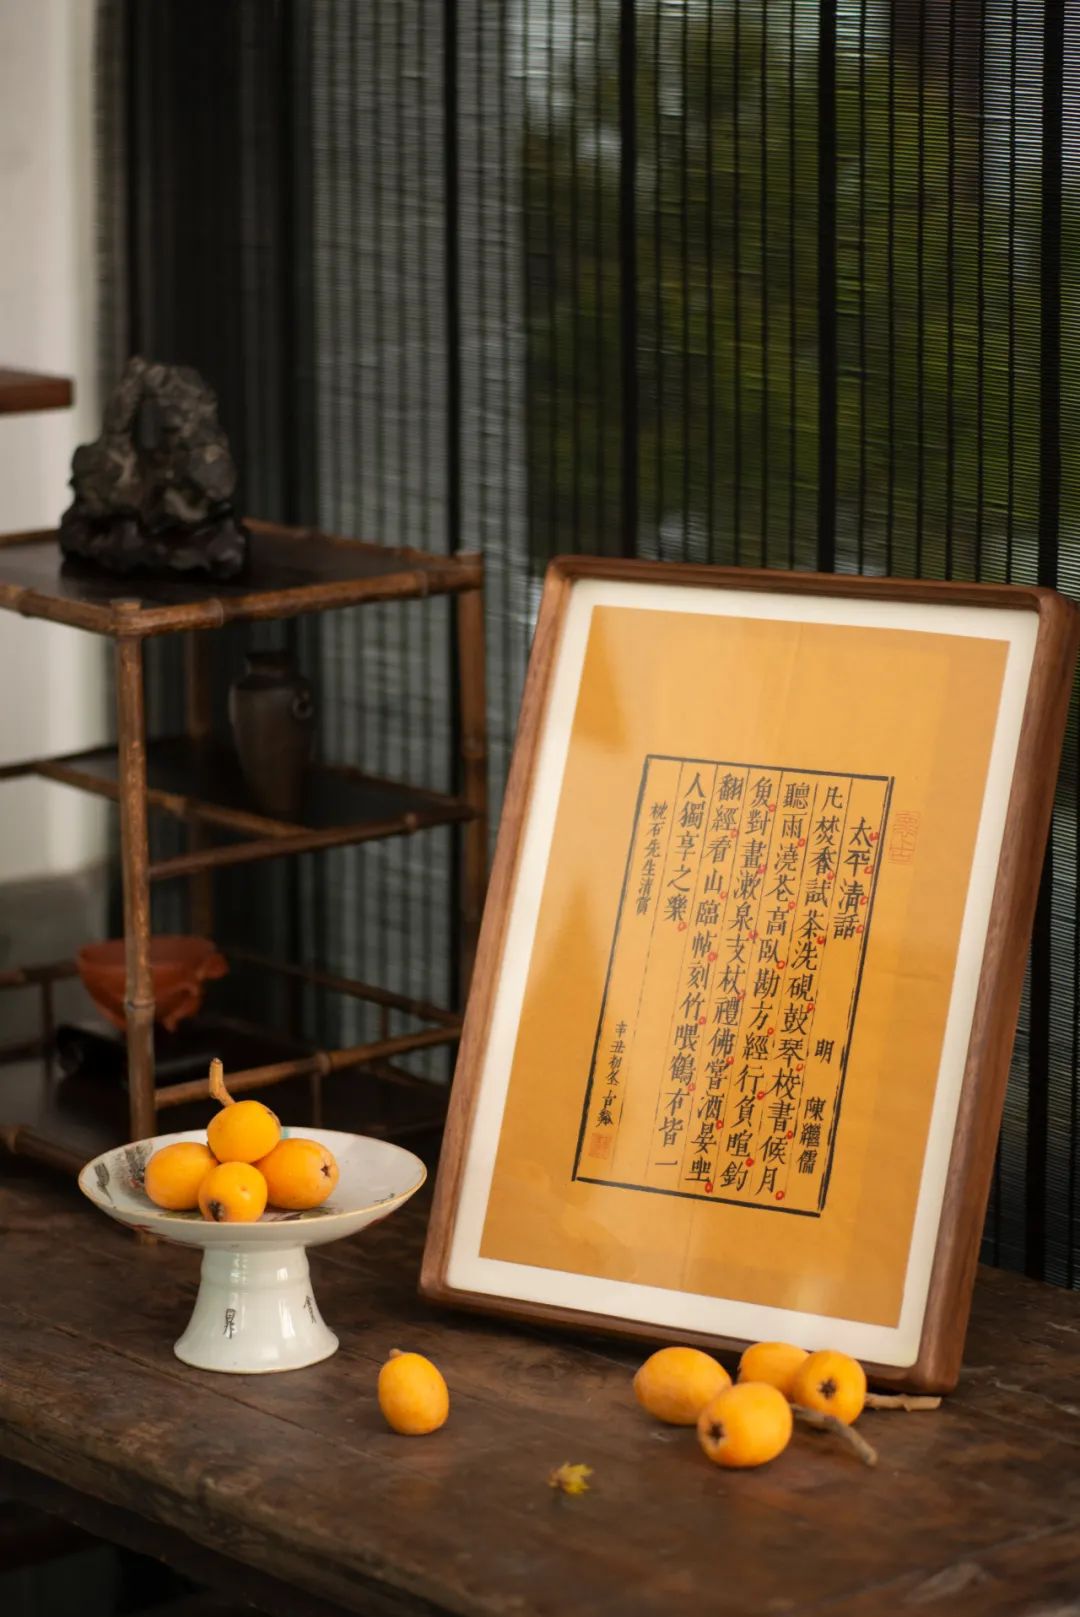 太平清話
明 陳繼儒
凡焚香試茶洗硯鼓琴校書候月
聽雨澆花高臥勘方經行負暄釣
魚對畫漱泉支杖禮佛嘗酒晏坐
翻經看山臨帖刻竹喂鶴右皆一
人獨享之樂
枕石先生清賞
辛丑初冬